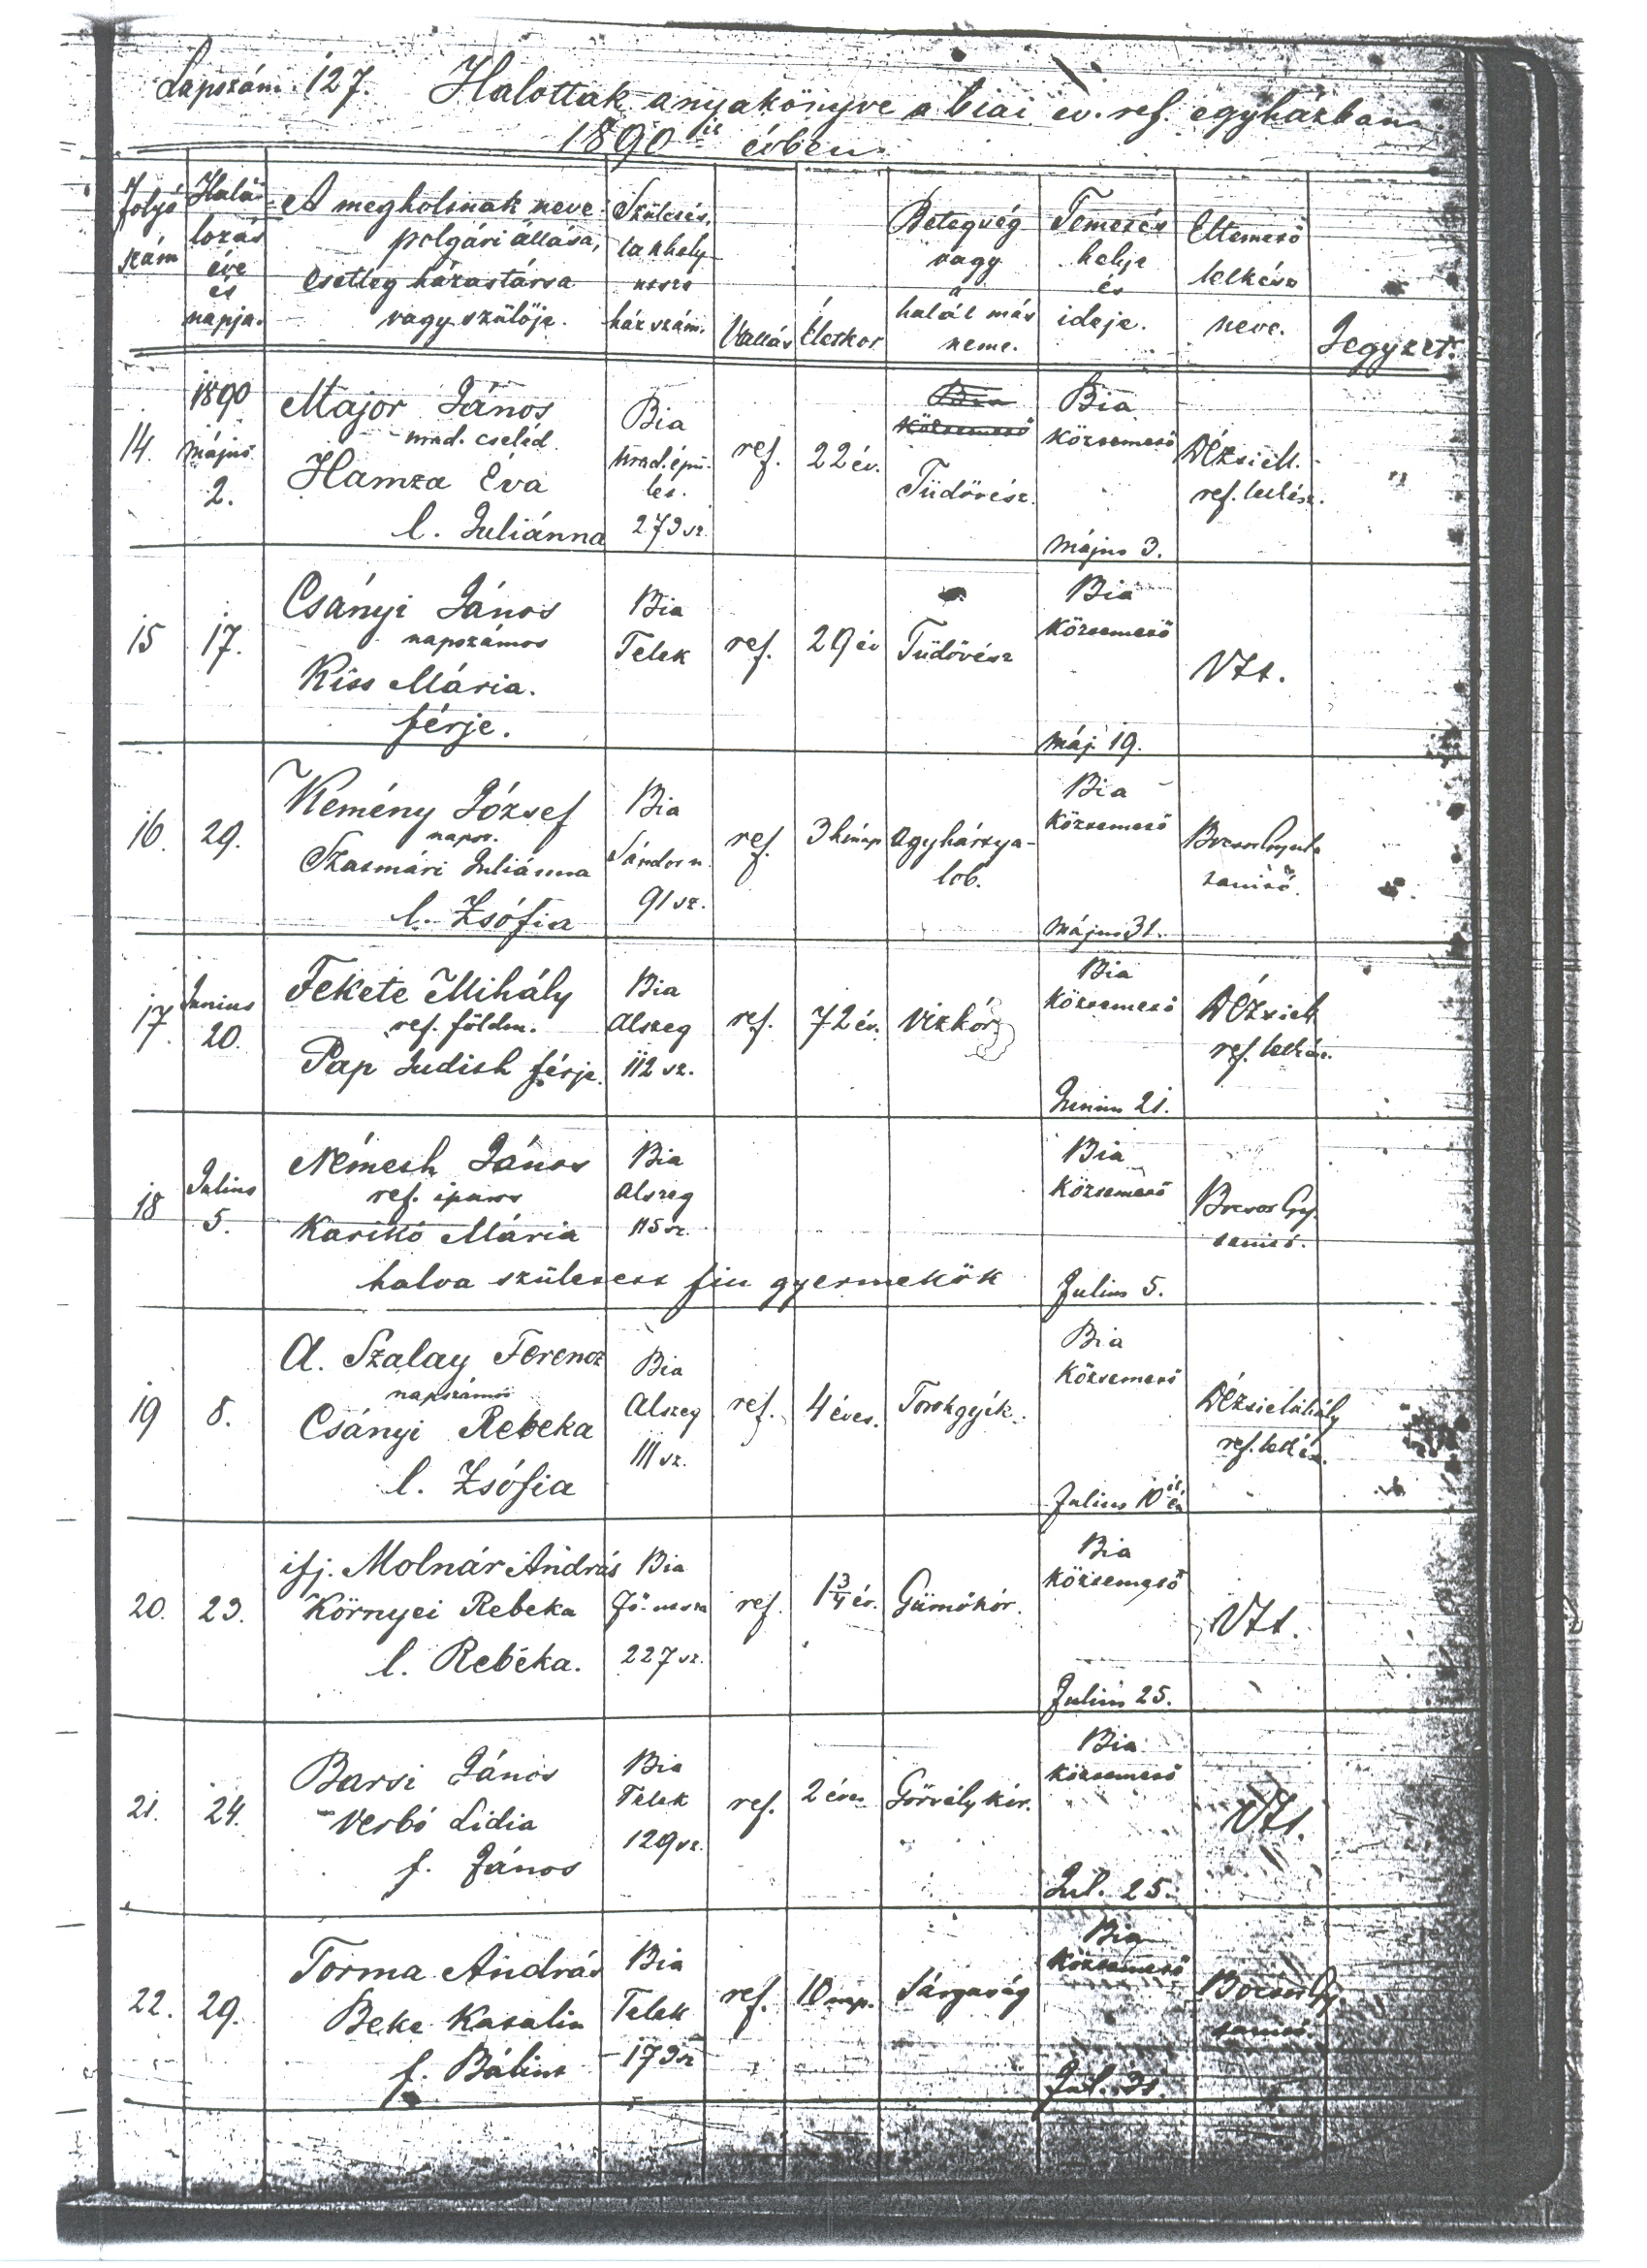 Lapszám. 127. Halottak anyakönyve a biai ev. ref. egyházban
1890 ik évben.
Folyó szám
Halálozás éve és napja.
A megholtnak neve
polgári állása,
esetleg házastársa
vagy szülője.
Születés,
lakhely
házszám.
Vallás
Életkor
Betegség
vagy
a
halál más
neme.
Temetés
helye
és
ideje.
Eltemető
lelkész
neve.
Jegyzet.
14.
1890
május
2.
Major János
urad. cseléd
Hamza Éva
l. Juliánna
Bia
urad. épü-
let.
273 sz.
ref.
22 év.
Bia
köztemető
Tüdővész.
Bia
köztemető
május 3.
Dézsi M.
ref. lelkész.
"
15
17.
Csányi János
napszámos
Kiss Mária.
férje.
Bia
Telek
ref.
29 év
Tüdővész
Bia
köztemető
máj. 19.
16.
29.
Kemény József
napsz.
Szatmári Juliánna
l. Zsófia
Bia
Sándor u.
91 sz.
ref.
3 hónap
agyhártya-
lob.
Bia
köztemető
május 31.
tanító.
17.
Junius
20.
Fekete Mihály
ref. földm.
Pap Judith férje.
Bia
Alszeg
112 sz.
ref.
72 év.
Vizkór
Bia
köztemető
Junius 21.
Dézsi M.
ref. lelkész.
18
Julius
5.
Németh János
ref. iparos
Karikó Mária
halva született fiu gyermekök
Bia
Alszeg
115 sz.
Bia
köztemető
Julius 5.
tanító.
19
8.
A. Szalay Ferencz
napszámos
Csányi Rebeka
l. Zsófia
Bia
Alszeg
111 sz.
ref.
4 éves.
Torokgyík.
Bia
köztemető
Julius 10 én
Dézsi Mihály
ref. lelkész.
20.
23.
ifj. Molnár András
Környei Rebeka
l. Rebéka.
Bia
Fő-utcza
227 sz.
ref.
1 3/4 év.
Gümőkór.
Bia
köztemető
Julius 25.
21.
24.
Barsi János
Verbó Lidia
f. János
Bia
Telek
129 sz.
ref.
2 éves
Görvélykór.
Bia
köztemető
Jul. 25.
22.
29.
Torma András
Beke Katalin
f. Bálint
Bia
Telek
173 sz
ref.
10 nap.
Sárgaság
Bia
köztemető
Jul. 31.
tanító.